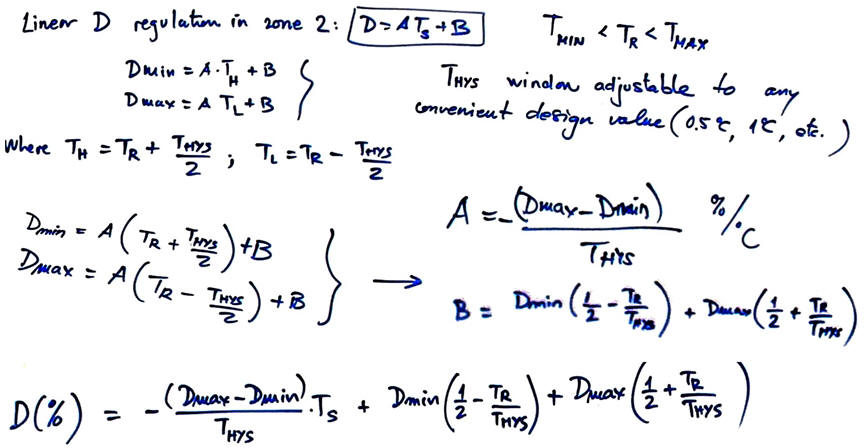 Linear D regulation in zone 2: D = A T_S + B
T_MIN < T_R < T_MAX
Dmin = A · T_H + B
Dmax = A T_L + B
T_HYS window adjustable to any
convenient design value (0.5°C, 1°C, etc.)
where T_H = T_R + T_HYS/2 ; T_L = T_R - T_HYS/2
Dmin = A (T_R + T_HYS/2) + B
Dmax = A (T_R - T_HYS/2) + B
→
A = -(Dmax - Dmin)/T_HYS %/°C
B = Dmin (1/2 - T_R/T_HYS) + Dmax (1/2 + T_R/T_HYS)
D(%) = -(Dmax - Dmin)/T_HYS · T_S + Dmin (1/2 - T_R/T_HYS) + Dmax (1/2 + T_R/T_HYS)